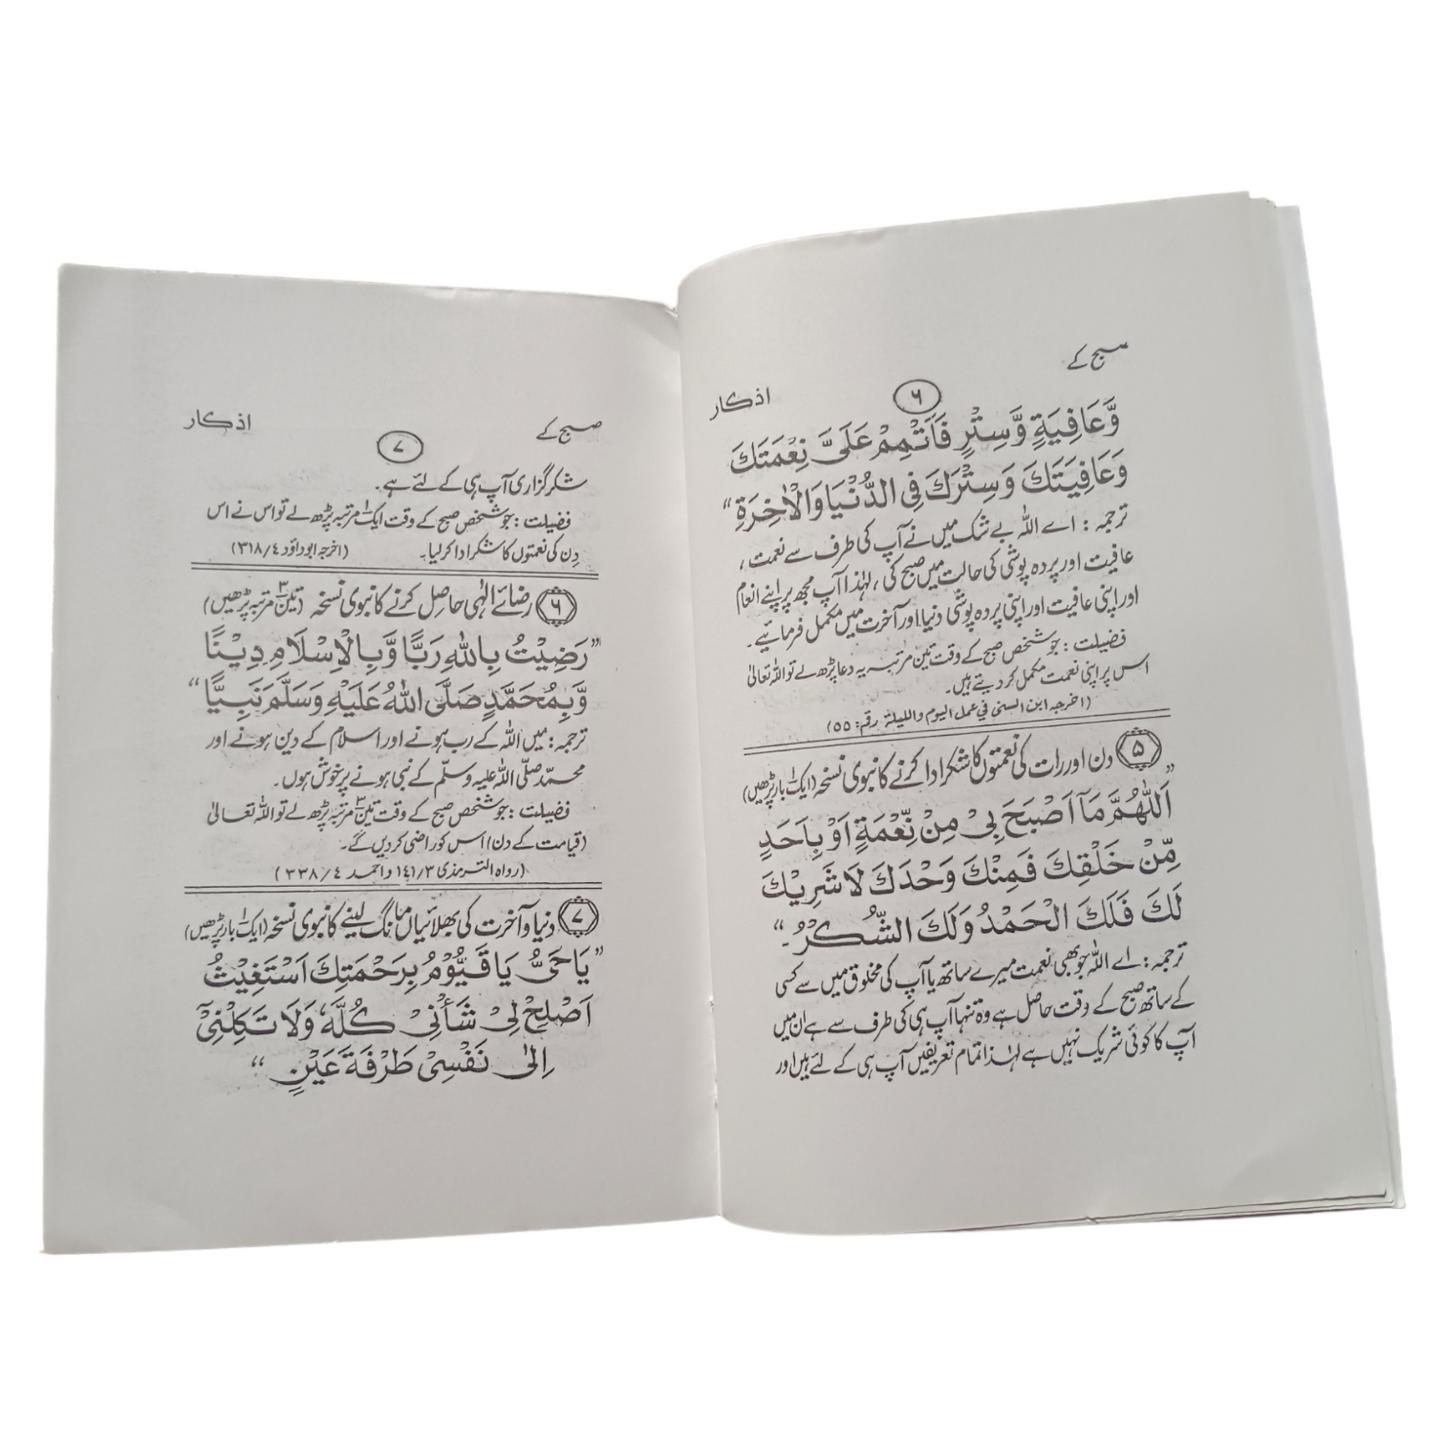 صبح کے
۶
اذکار
وَّعَافِيَةٍ وَّسِتْرٍ فَاَتْمِمْ عَلَىَّ نِعْمَتَكَ
وَعَافِيَتَكَ وَسِتْرَكَ فِى الدُّنْيَا وَالْاٰخِرَةِ“
ترجمہ: اے اللہ بے شک میں نے آپ کی طرف سے نعمت،
عافیت اور پردہ پوشی کی حالت میں صبح کی، لہٰذا آپ مجھ پر اپنے انعام
اور اپنی عافیت اور اپنی پردہ پوشی دنیا اور آخرت میں مکمل فرمائیے۔
فضیلت: جو شخص صبح کے وقت تین مرتبہ یہ دعا پڑھ لے تو اللہ تعالیٰ
اس پر اپنی نعمت مکمل کر دیتے ہیں۔
(اخرجہ ابن السنی فی عمل الیوم واللیلۃ رقم: ۵۵)
۵ دن اور رات کی نعمتوں کا شکر ادا کرنے کا نبوی نسخہ (ایک۱ بار پڑھیں)
”اَللّٰهُمَّ مَآ اَصْبَحَ بِىْ مِنْ نِّعْمَةٍ اَوْ بِاَحَدٍ
مِّنْ خَلْقِكَ فَمِنْكَ وَحْدَكَ لَا شَرِيْكَ
لَكَ فَلَكَ الْحَمْدُ وَلَكَ الشُّكْرُ۔“
ترجمہ: اے اللہ جو بھی نعمت میرے ساتھ یا آپ کی مخلوق میں سے کسی
کے ساتھ صبح کے وقت حاصل ہے وہ تنہا آپ ہی کی طرف سے ہے ان میں
آپ کا کوئی شریک نہیں ہے لہٰذا تمام تعریفیں آپ ہی کے لئے ہیں اور
صبح کے
۷
اذکار
شکر گزاری آپ ہی کے لئے ہے۔
فضیلت: جو شخص صبح کے وقت ایک۱ مرتبہ پڑھ لے تو اس نے اس
دِن کی نعمتوں کا شکر ادا کر لیا۔ (اخرجہ ابوداؤد ۴/۳۱۸)
۶ رضائے الٰہی حاصل کرنے کا نبوی نسخہ (تین۳ مرتبہ پڑھیں)
”رَضِيْتُ بِاللّٰهِ رَبًّا وَّبِالْاِسْلَامِ دِيْنًا
وَّبِمُحَمَّدٍ صَلَّى اللّٰهُ عَلَيْهِ وَسَلَّمَ نَبِيًّا“
ترجمہ: میں اللہ کے رب ہونے اور اسلام کے دین ہونے اور
محمّد صلّی اللہ علیہ وسلّم کے نبی ہونے پر خوش ہوں۔
فضیلت: جو شخص صبح کے وقت تین۳ مرتبہ پڑھ لے تو اللہ تعالیٰ
(قیامت کے دن) اس کو راضی کر دیں گے۔
(رواہ الترمذی ۳/۱۴۱ و احمد ۴/۳۳۸)
۷ دنیا و آخرت کی بھلائیاں مانگ لینے کا نبوی نسخہ (ایک۱ بار پڑھیں)
”يَا حَىُّ يَا قَيُّوْمُ بِرَحْمَتِكَ اَسْتَغِيْثُ
اَصْلِحْ لِىْ شَأْنِىْ كُلَّهٗ وَلَا تَكِلْنِىْٓ
اِلٰى نَفْسِىْ طَرْفَةَ عَيْنٍ“